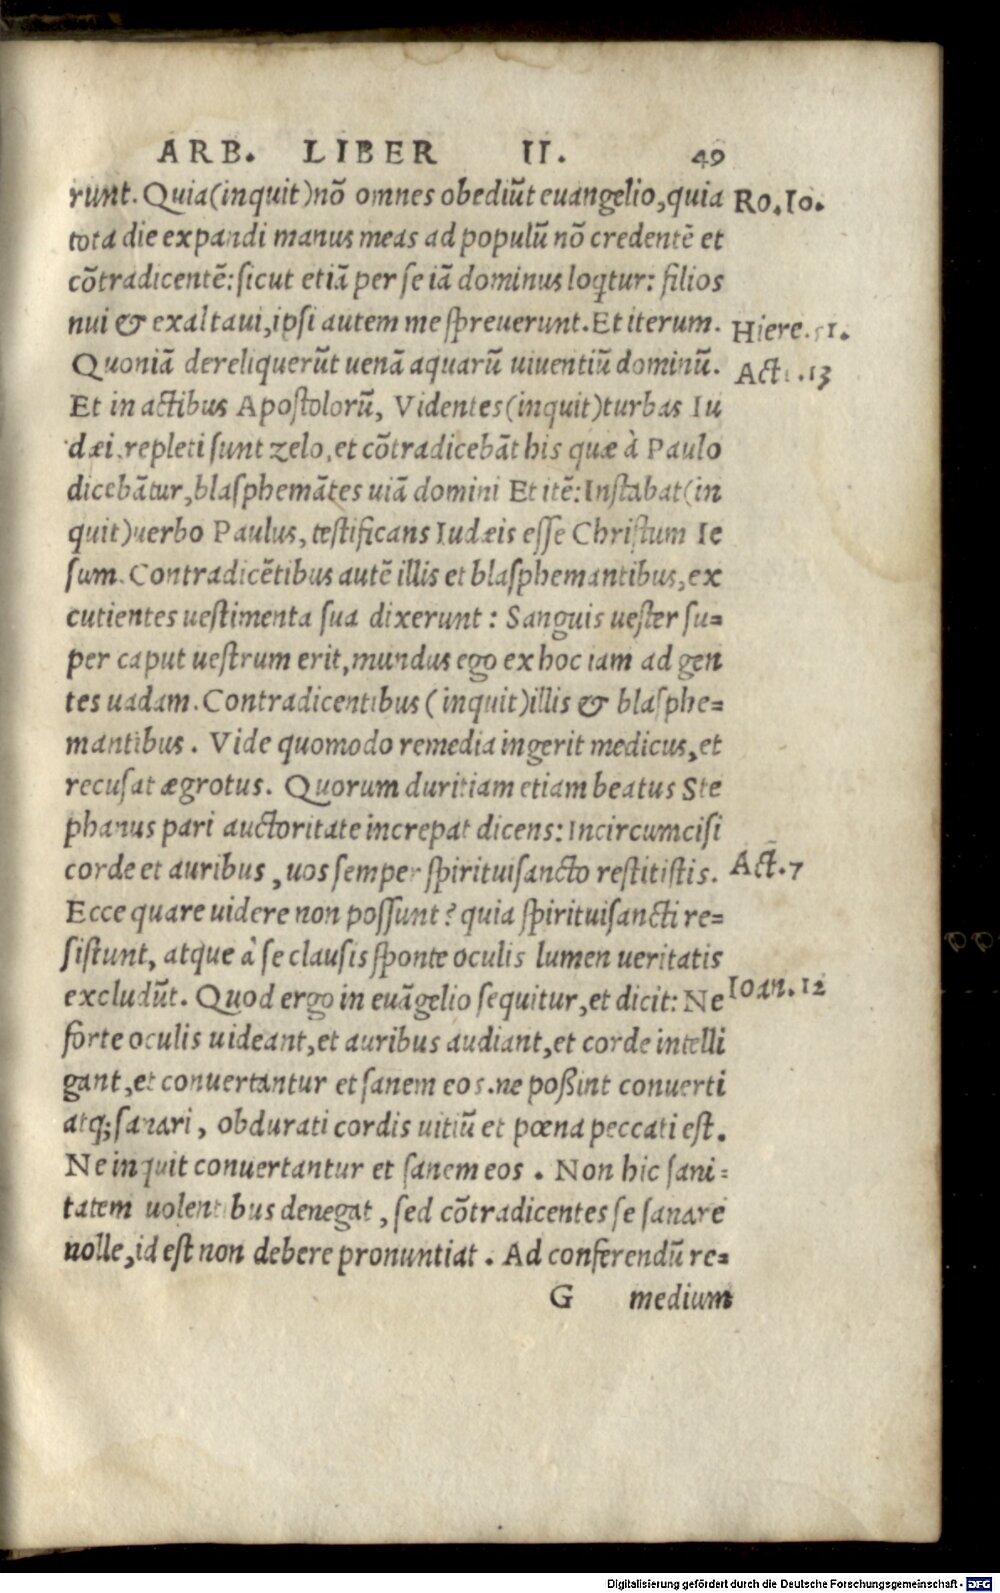 ARB. LIBER II. 49
runt. Quia(inquit)nõ omnes obediũt euangelio, quia Ro.10.
tota die expandi manus meas ad populũ nõ credentẽ et
cõtradicentẽ: sicut etiã per se iã dominus loqtur: filios
nui & exaltaui, ipsi autem me spreuerunt. Et iterum. Hiere.51.
Quoniã dereliquerũt uenã aquarũ uiuentiũ dominũ. Act. 13
Et in actibus Apostolorũ, Videntes(inquit)turbas Iu
dæi repleti sunt zelo, et cõtradicebãt his quæ à Paulo
dicebãtur, blasphemãtes uiã domini Et itẽ: Instabat(in
quit)uerbo Paulus, testificans Iudæis esse Christum Ie
sum. Contradicẽtibus autẽ illis et blasphemantibus, ex
cutientes uestimenta sua dixerunt: Sanguis uester su=
per caput uestrum erit, mundus ego ex hoc iam ad gen
tes uadam. Contradicentibus (inquit)illis & blasphe=
mantibus. Vide quomodo remedia ingerit medicus, et
recusat ægrotus. Quorum duritiam etiam beatus Ste
phanus pari auctoritate increpat dicens: Incircumcisi
corde et auribus, uos semper spirituisancto restitistis. Act.7
Ecce quare uidere non possunt? quia spirituisancti re=
sistunt, atque à se clausis sponte oculis lumen ueritatis
excludũt. Quod ergo in euãgelio sequitur, et dicit: Ne Ioan.12
forte oculis uideant, et auribus audiant, et corde intelli
gant, et conuertantur et sanem eos. ne poßint conuerti
atq; sanari, obdurati cordis uitiũ et pœna peccati est.
Ne inquit conuertantur et sanem eos. Non hic sani=
tatem uolentibus denegat, sed cõtradicentes se sanare
nolle, id est non debere pronuntiat. Ad conferendũ re=
G medium
Digitalisierung gefördert durch die Deutsche Forschungsgemeinschaft - DFG